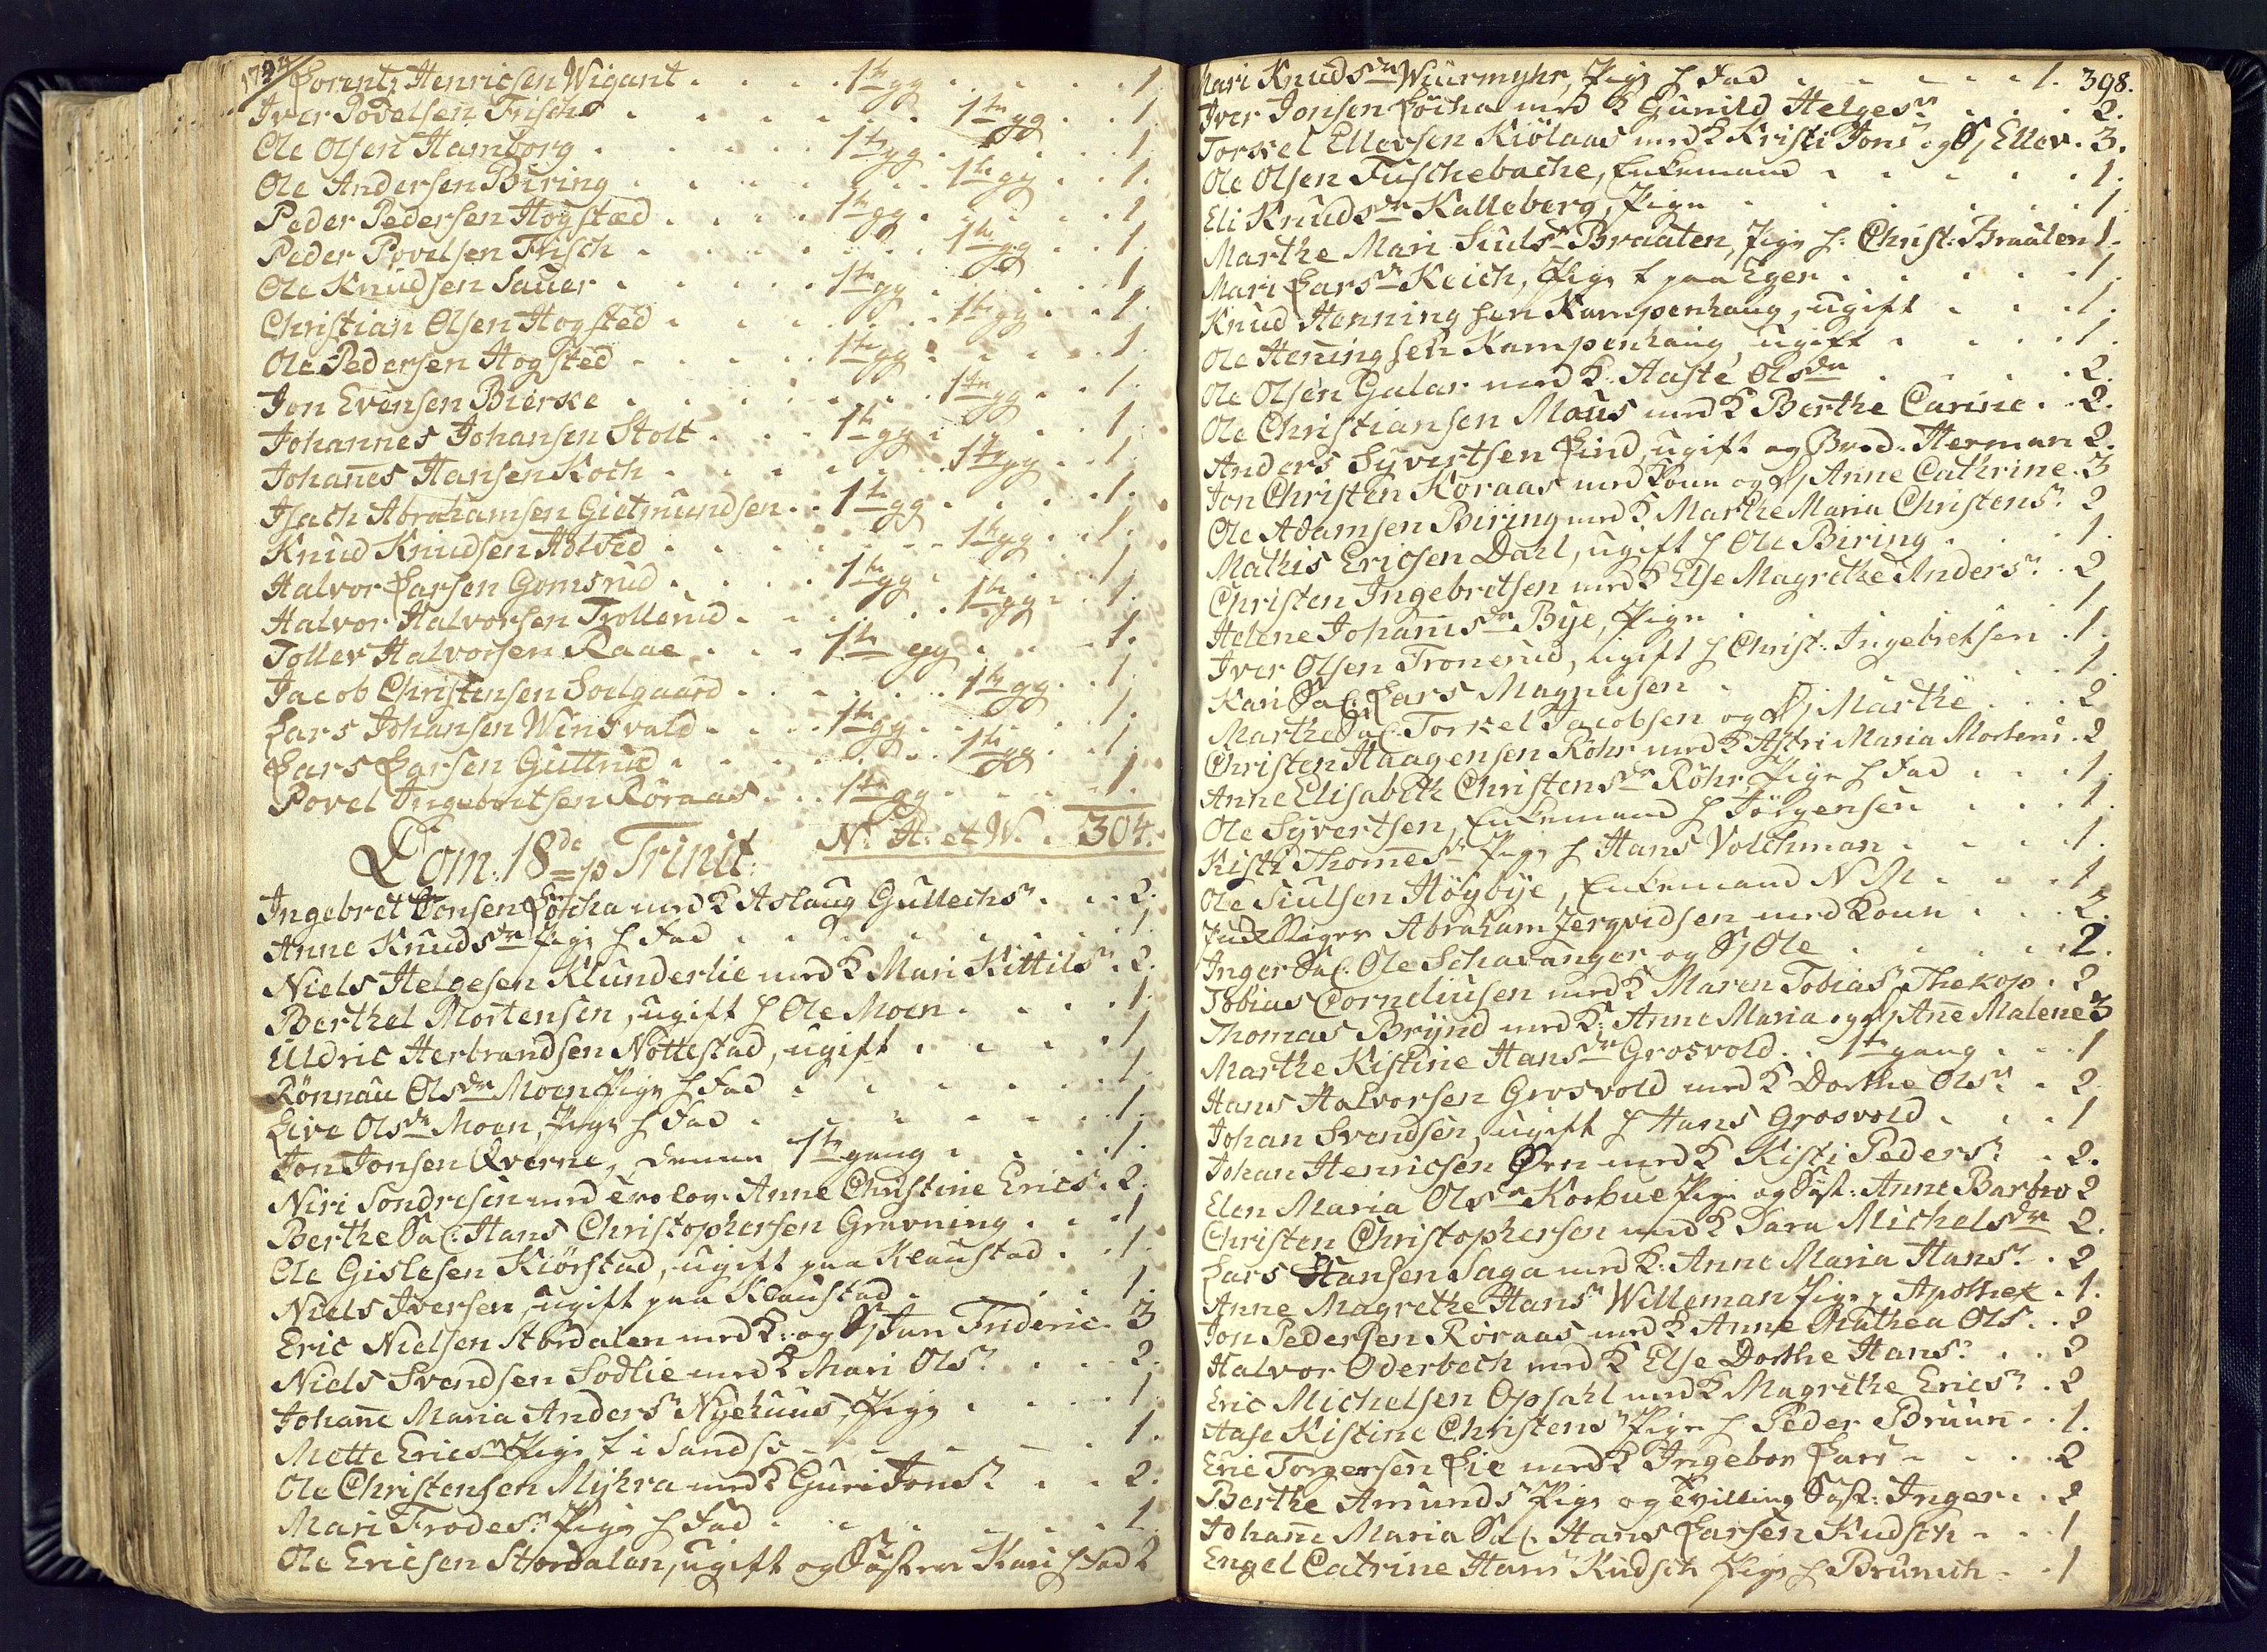 Lorentz Henricsen Wigant . . . 1te gg . . . . 1
Iver Povelsen Frisch . . . . . . 1te gg . . 1.
Ole Olsen Hamborg . . . . . 1te gg . . . . 1
Ole Andersen Biring . . . . . . 1te gg . . 1.
Peder Pedersen Hogstæd . . . . 1te gg . . . . 1
Peder Povelsen Frisch . . . . . . 1te gg . . 1.
Ole Knudsen Sauer . . . . . 1te gg . . . . 1.
Christian Olsen Hogsted . . . . . . 1te gg . . 1.
Ole Pedersen Hogsted . . . . . 1te gg . . . . 1.
Jon Evensen Bierke . . . . . . 1te gg . . 1.
Johannes Johansen Stolt . . . 1te gg . . . . 1.
Johanes Hansen Koch . . . . . . 1te gg . . 1.
Isach Abrahamsen Gietmundsen . . 1te gg . . . . 1.
Knud Knudsen Adtved . . . . . . 1te gg . . 1.
Halvor Larsen Gomsrud . . . . 1te gg . . . . 1.
Halvor Halvorsen Trollerud . . . . . . 1te gg . . 1.
Tollev Halvorsen Raae . . . 1te gg . . . . 1.
Jacob Christensen Soelgaard . . . . . . 1te gg . . 1.
Lars Johansen Winsvald . . . 1te gg . . . . 1.
Lars Larsen Guttrud . . . . . . 1te gg . . 1.
Povel Ingebretsen Röraas . . 1te gg . . . . 1.
N: A: et W. . 304.
Dom: 18de p Trinit:
Ingebret Jonsen Löcha med K Aslaug Gullechs: . . 2.
Anne Knudsdr Pige h Fad . . . . . . . 1.
Niels Helgesen Klunderlie med K Mari Kittils: . 2.
Berthel Mortensen, ugift h Ole Moen . . . . 1.
Uldric Herbrandsen Nottestad, ugift . . . . 1
Rönnau Olsdr Moen Pige h Fad . . . . . 1.
Live Olsdr Moen, Pige h Fad . . . . . . 1.
Jon Jonsen Qverne, denne 1te gang . . . . 1.
Niri Sondresen med trolov: Anne Christine Erics: 2.
Berthe Sal: Hans Christophersen Grevning . . . 1
Ole Gislesen Kiörstad, ugift paa Klaustad . . 1.
Niels Iversen, ugift paa Klaustad . . . . 1.
Eric Nielsen Stordalen med K: og S Jan Frideric . 3
Niels Svendsen Sodlie med K Mari Ols: . . . 2.
Johanne Maria Anders: Nyehuus, Pige . . . . 1.
Mette Erics: Pige t i Sandsv . . . . 1.
Ole Christensen Myhra med K Guri Jons: . . . 2.
Mari Frodes: Pige h Fad . . . . . . 1.
Ole Ericsen Stordalen, ugift og Søster Kari h Fad 2
398.
Mari Knudsdr Wiurmyhr, Pige h Fad . . . . . 1.
Iver Jonsen Löcha med K Gunild Helges: . . . 2.
Torkel Ellevsen Kiölaas med K Kristi Jons: og S Ellev . 3.
Ole Olsen Fuschebache, Enkemand . . . . . 1.
Eli Knudsdr Kalleberg, Pige . . . . . . 1.
Marthe Mari Siuls: Braaten, Pige h: Christ: Braaten 1.
Mari Lars: Keich, Pige t paa Eger . . . . . 1.
Knud Henningsen Kampenhaug, ugift . . . 1.
Ole Heningsen Kampenhaug, ugift . . . . 1.
Ole Olsen Gulas med K: Aaste Olsdr . . . . 2.
Ole Christiansen Maus med K Berthe Carine . . 2.
Anders Syvertsen Lind, ugift og Brod: Herman 2.
Jon Christen Koraas med Kone og D Anne Cathrine . 3
Ole Adamsen Biring med K Marthe Maria Christens: 2
Mathis Ericsen Dahl, ugift h Ole Biring . . . 1.
Christen Ingebretsen med K Else Magrethe Anders: . 2
Helene Johansdr Bye, Pige . . . . . . 1
Iver Olsen Tronerud, ugift h Christ: Ingebretsen . 1.
Kari Sal: Lars Magnusen . . . . . . 1.
Marthe Sal: Torkel Jacobsen og D Marthe . . . 2
Christen Haagensen Röhr med K Astri Maria Mortens: . 2
Anne Elisabeth Christensdr Röhr, Pige h Fad . . . 1.
Ole Syvertsen, Enkemand h Jörgensen . . . 1.
Kisti Thomes: Pige h Hans Volchman . . . . 1.
Ole Siulsen Höybye, Enkemand N M . . . 1.
Abraham Jergvidsen med Kone . . . 2.
Inger Sal: Ole Schavanger og S Ole . . . . . 2.
Tobias Corneliusen med K Maren Tobias: Thekop . 2
Thomas Brynd med K: Anne Maria og D Ane Malene 3
Marthe Kistine Hansdr Grosvold . . 1te gang . . . 1
Hans Halvorsen Grosvold med K Dorthe Ols: . 2.
Johan Svendsen, ugift h Hans Grosvold . . . 1
Johan Henricsen Örn med K Kisti Peders: . . 2.
Elen Maria Ols: Korbue Pige og Søst: Anne Barbro 2
Christen Christophersen med K Sara Michelsdr 2.
Lars Hansen Saga med K: Anne Maria Hans: . . 2
Anne Magrethe Hans: Willeman Pige p Apothek . 1.
Jon Pedersen Röraas med K Anne Mathea Ols: . 2
Halvor Oderbech med K Else Dorthe Hans: . . . 2
Eric Michelsen Opsahl med K Magrethe Erics: . 2
Aase Kistine Christens: Pige h Peder Bruun . . 1.
Eric Torgersen Lie med K Ingebor Lars: . . . 2
Berthe Amunds: Pige og Tvilling Søst: Inger . . 2
Johane Maria Sal: Hans Larsen Kudsch . . . 1
Engel Catrine Hans: Kudsch Pige h Brunich . . 1